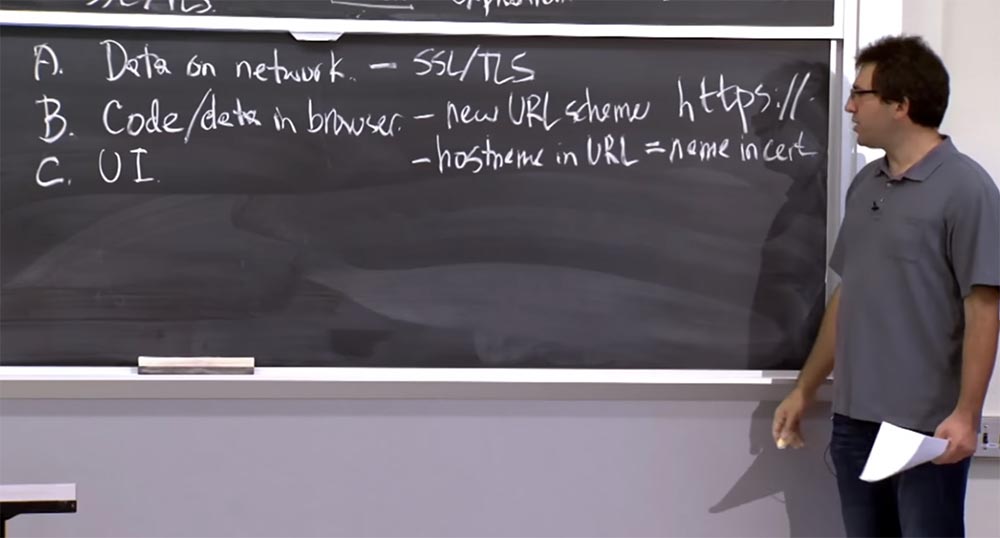 SSL/TLS.
A. Data on network. - SSL/TLS
B. Code/data in browser. - new URL scheme https://.
C. UI. - hostname in URL = name in cert